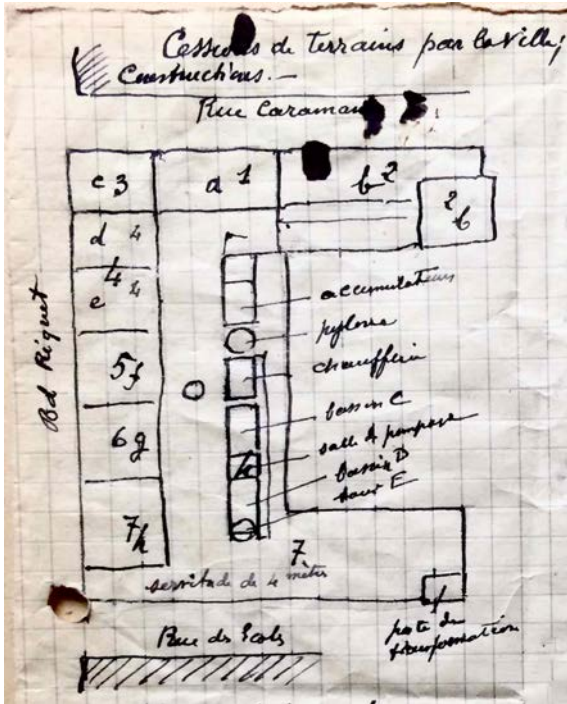 Cessions de terrains par la Ville;
Constructions.—
Rue Caraman
c 3
a 1
b 2
2 b
d 4
4
e 4
5 f
6 g
7 h
Bd Riquet
accumulateurs
pylone
chaufferie
bassin C
salle de pompage
bassin D
tour E
7
servitude de 4 mètres
Rue des Ecoles
poste de
transformation